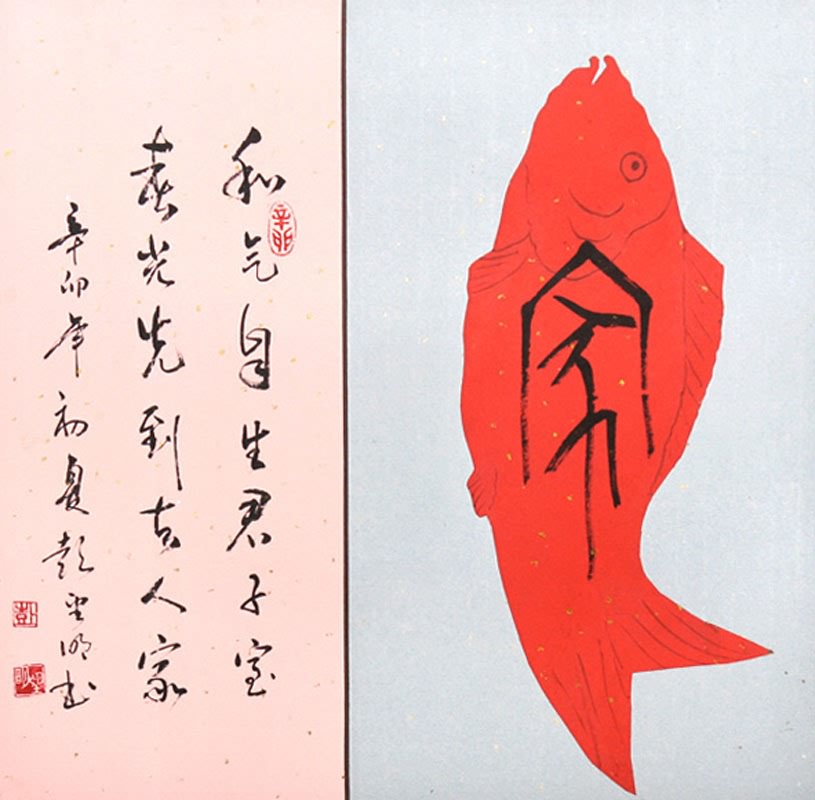 家
和气自生君子室
辛卯
春光先到吉人家
辛卯年初夏彭明书
彭